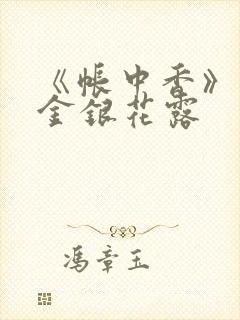 《帐中香》
金银花露
冯章玉